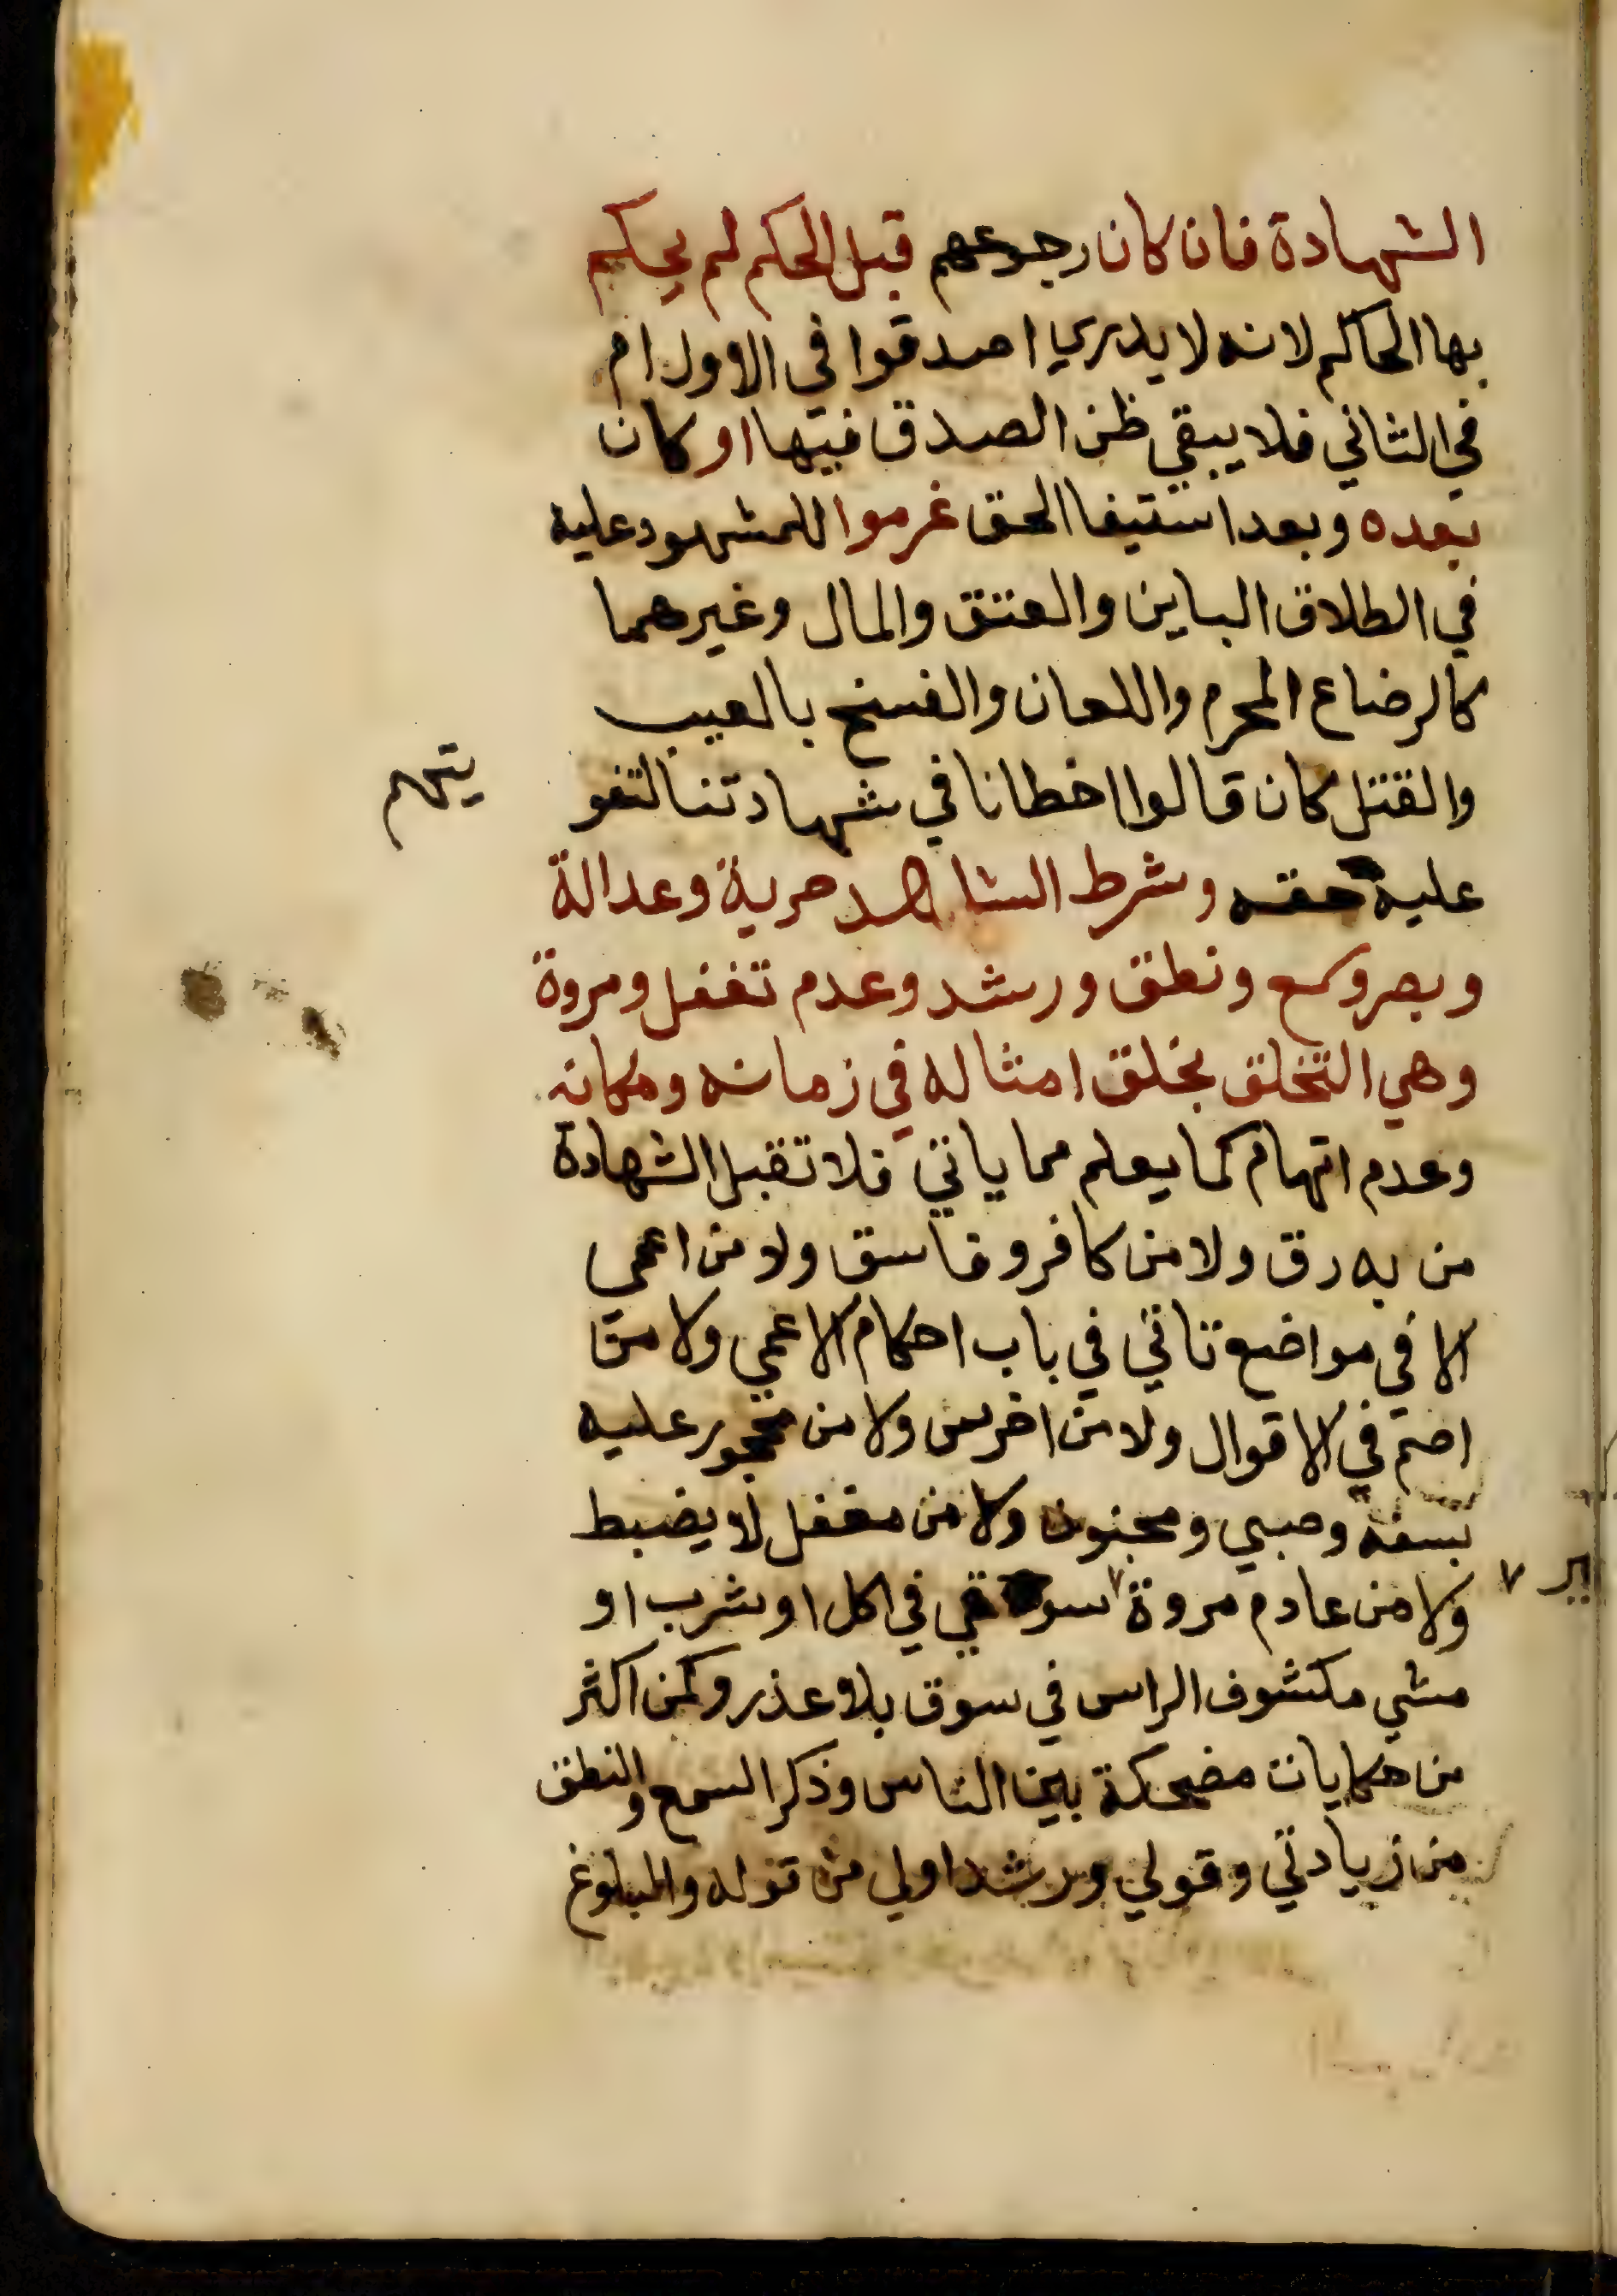 الشهادة فان كان رجوعهم قبل الحكم لم يحكم
بها الحاكم لانه لا يدري اصدقوا في الاول ام
في الثاني فلا يبقي ظن الصدق فيها او كان
بعده وبعد استيفا الحق غرموا للمشهود عليه
في الطلاق الباين والعتق والمال وغيرهما
كالرضاع المحرم واللعان والفسخ بالعيب
والقتل كان قالوا اخطانا في شهادتنا لتفو
يتهم
عليه حقه وشرط الشاهد حرية وعدالة
وبصر وسمع ونطق ورشد وعدم تغفل ومروة
وهي التخلق بخلق امثاله في زمانه ومكانه
وعدم اتهام كما يعلم مما ياتي فلا تقبل الشهادة
من به رق ولا من كافر وفاسق ولا من اعمي
الا في مواضع تاتي في باب احكام الاعمي ولا من
اصم في الاقوال ولا من اخرس ولا من محجور عليه
بسفه وصبي ومجنون ولا من مغفل لا يضبط
ولا من عادم مروة سوقي في اكل او شرب او
مشي مكشوف الراس في سوق بلا عذر وكمن اكثر
من حكايات مضحكة بين الناس وذكر السمع والنطق
من زيادتي وقولي ورشد اولي من قوله والبلوغ